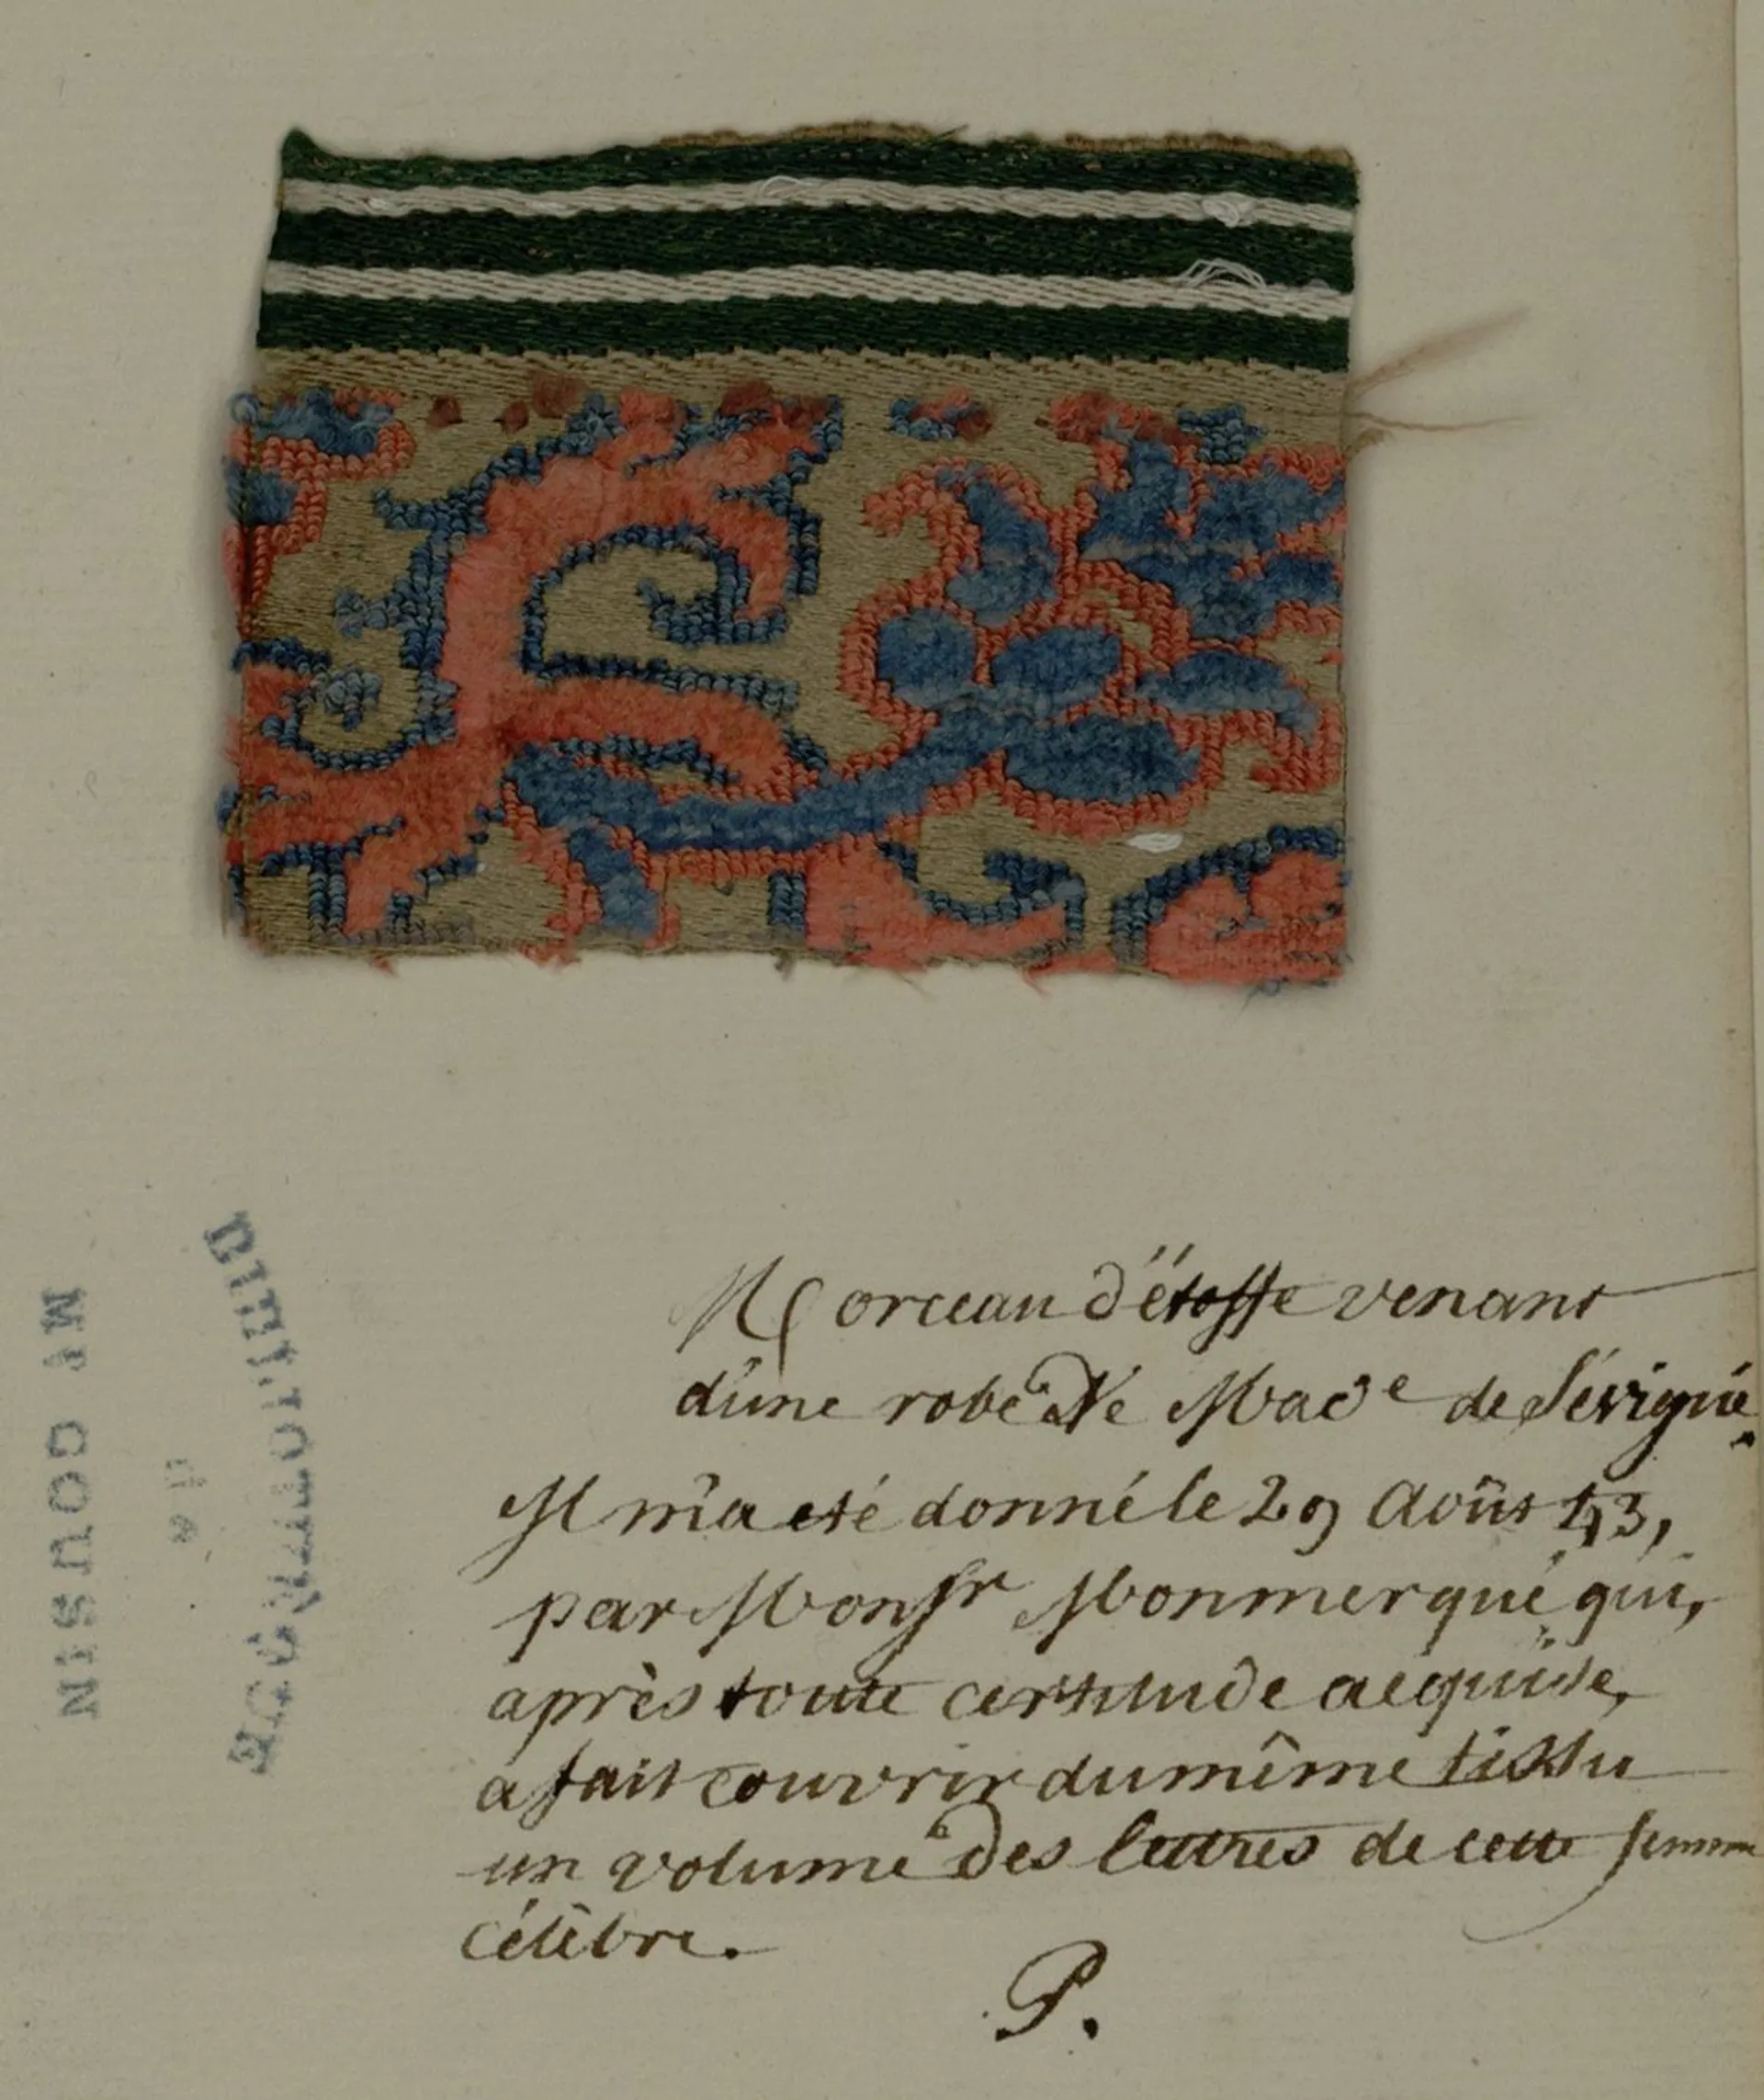 Morceau d'étoffe venant
d'une robe de Made de Sévigné.
Il m'a eté donné le 29 Août 43,
par Monsr Monmerqué qui,
après toute certitude acquise,
a fait couvrir du même tissu
un volume des lettres de cette femme
célèbre.
P.
BIBLIOTHÈQUE
DE
MR COUSIN